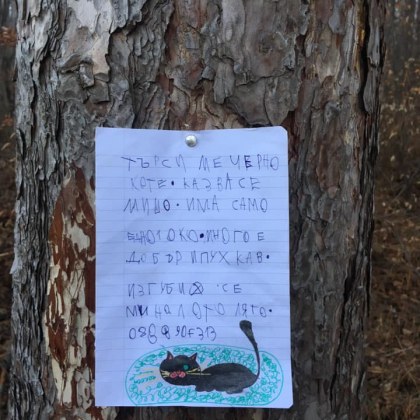 ТЪРСИ МЕ ЧЕРНО
КОТЕ. КАЗВА СЕ
МИШО. ИМА САМО
ЕДНО ОКО. МНОГО Е
ДОБЪР И ПУХКАВ.
ИЗГУБИ СЕ
МИНАЛОТО ЛЯТО.